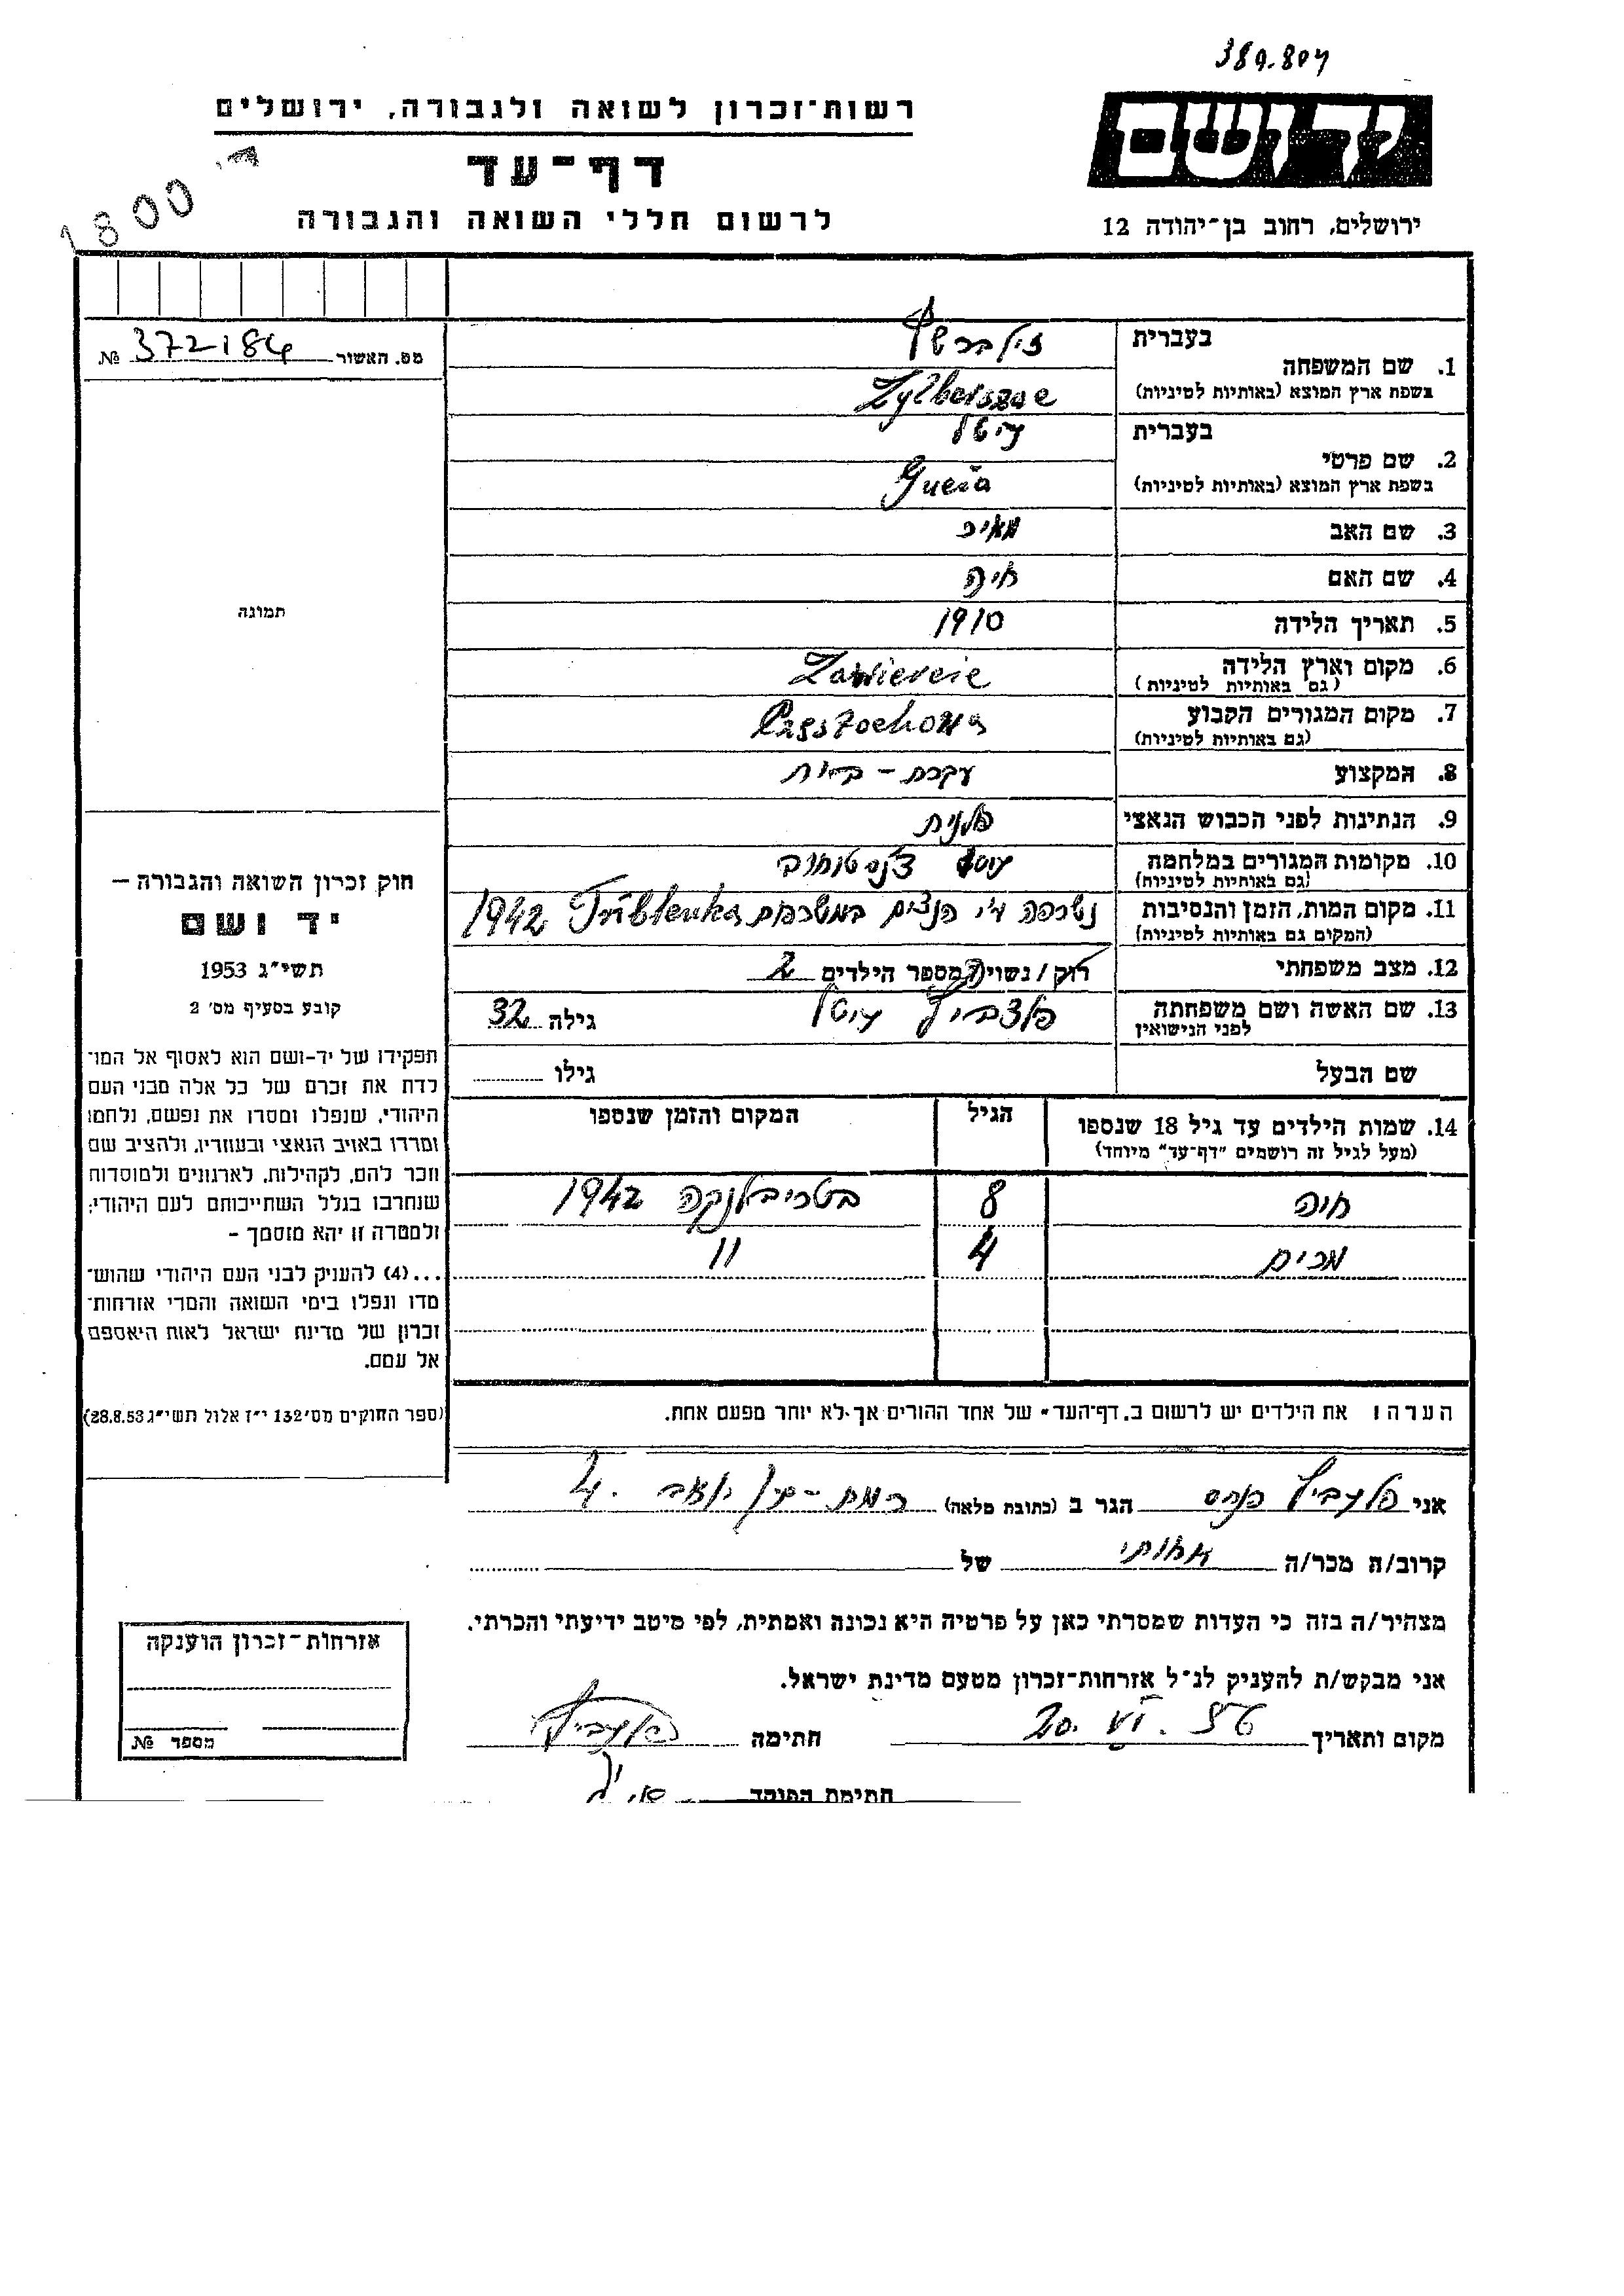 389.804
ידושם
ירושלים, רחוב בן־יהודה 12
רשות־זכרון לשואה ולגבורה, ירושלים
דף־עד
לרשום חללי השואה והגבורה
1800
מס. האשור 372184 №
תמונה
חוק זכרון השואה והגבורה —
יד ושם
תשי״ג 1953
קובע בסעיף מס׳ 2
תפקידו של יד-ושם הוא לאסוף אל המו־
לדת את זכרם של כל אלה מבני העם
היהודי, שנפלו ומסרו את נפשם, נלחמו
ומרדו באויב הנאצי ובעוזריו, ולהציב שם
וזכר להם, לקהילות, לארגונים ולמוסדות
שנחרבו בגלל השתייכותם לעם היהודי;
ולמטרה זו יהא מוסמך —
...(4) להעניק לבני העם היהודי שהוש־
מדו ונפלו בימי השואה והמרי אזרחות־
זכרון של מדינת ישראל לאות היאספם
אל עמם.
(ספר החוקים מס׳ 132 י״ז אלול תשי״ג 28.8.53)
1. שם המשפחה
בעברית זילברשץ
בשפת ארץ המוצא (באותיות לטיניות) Zylberszac
2. שם פרטי
בעברית
בשפת ארץ המוצא (באותיות לטיניות)
3. שם האב מאיר
4. שם האם חיה
5. תאריך הלידה 1910
6. מקום וארץ הלידה Zawiercie
(גם באותיות לטיניות)
7. מקום המגורים הקבוע Częstochowa
(גם באותיות לטיניות)
8. המקצוע עקרת - בית
9. הנתינות לפני הכבוש הנאצי פולנית
10. מקומות המגורים במלחמה צ'נסטוחוב
(גם באותיות לטיניות)
11. מקום המות, הזמן והנסיבות נשרפה ע״י הנצים במשרפות Triblenka 1942
(המקום גם באותיות לטיניות)
12. מצב משפחתי רוק / נשוי מספר הילדים 2
13. שם האשה ושם משפחתה
לפני הנישואין גילה 32
שם הבעל גילו
14. שמות הילדים עד גיל 18 שנספו הגיל המקום והזמן שנספו
(מעל לגיל זה רושמים ״דף־עד״ מיוחד)
חיה 8 בטריבלנקה 1942
מרים 4 11
הערה: את הילדים יש לרשום ב„דף־העד״ של אחד ההורים אך לא יותר מפעם אחת.
אני הגר ב (כתובת מלאה) רמת - גן 4.
קרוב/ה מכר/ה אחותי של
מצהיר/ה בזה כי העדות שמסרתי כאן על פרטיה היא נכונה ואמתית, לפי מיטב ידיעתי והכרתי.
אני מבקש/ת להעניק לנ״ל אזרחות־זכרון מטעם מדינת ישראל.
מקום ותאריך 20. VI. 56 חתימה
חתימת הפוקד
אזרחות־זכרון הוענקה
מספר №